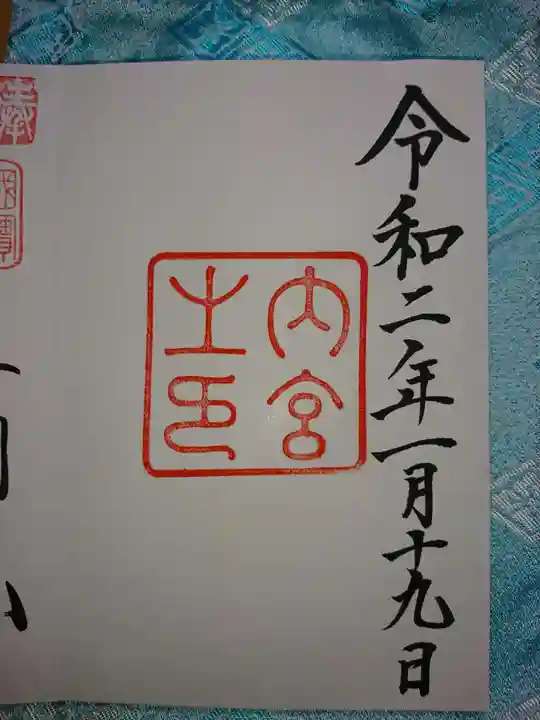 令和二年一月十九日
内宮
之印
奉